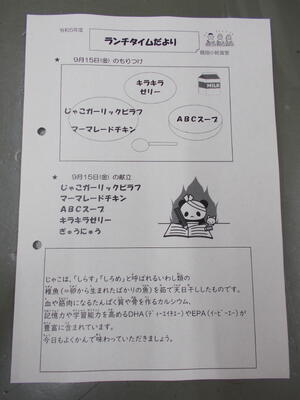 令和5年度
ランチタイムだより
給食室
★ 9月15日(金) のもりつけ
キラキラ
ゼリー
MILK
じゃこガーリックピラフ
ABCスープ
マーマレードチキン
★ 9月15日(金) の献立
じゃこガーリックピラフ
マーマレードチキン
ABCスープ
キラキラゼリー
ぎゅうにゅう
じゃこは、「しらす」、「しろめ」と呼ばれるいわし類の
稚魚(=卵から生まれたばかりの魚)を茹で天日干ししたものです。
血や筋肉になるたんぱく質や骨を作るカルシウム、
記憶力や学習能力を高めるDHA(ディーエイチエー)やEPA(イーピーエー)が
豊富に含まれています。
今日もよくかんで味わっていただきましょう。